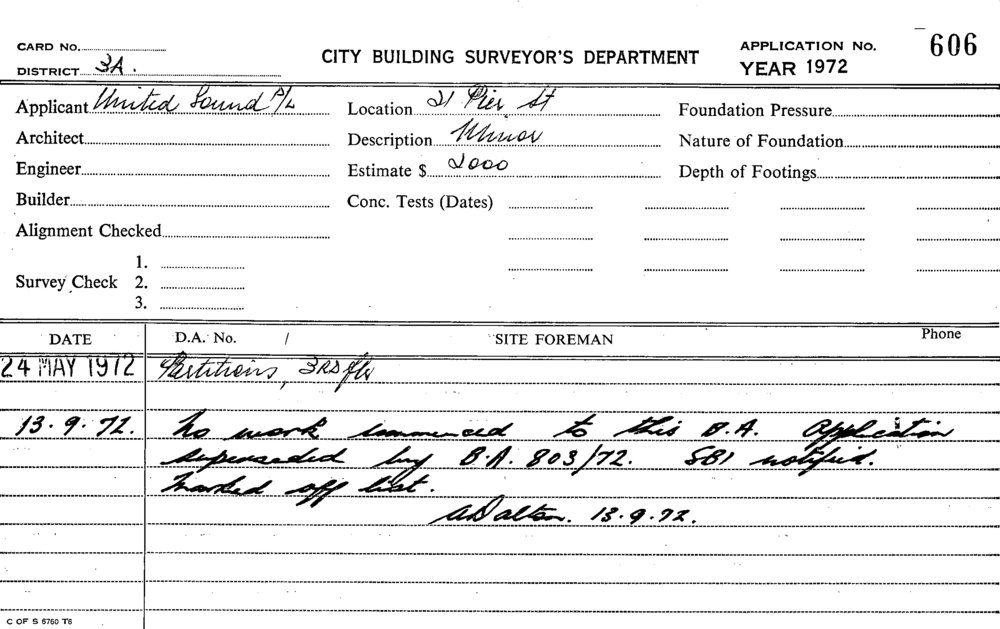 CARD No.
CITY BUILDING SURVEYOR'S DEPARTMENT
APPLICATION No. 606
DISTRICT 3A.
YEAR 1972
Applicant United Sound P/L
Location 21 Pier St
Foundation Pressure
Architect
Description Minor
Nature of Foundation
Engineer
Estimate $ 2000
Depth of Footings
Builder
Conc. Tests (Dates)
Alignment Checked
Survey Check 1.
2.
3.
DATE D.A. No. / SITE FOREMAN Phone
24 MAY 1972 Partitions, 3RD flr
13.9.72. No work commenced to this B.A. Application
superseded by B.A. 803/72. SBI notified.
Marked off list.
A Dalton. 13.9.72.
C OF S 6760 T6